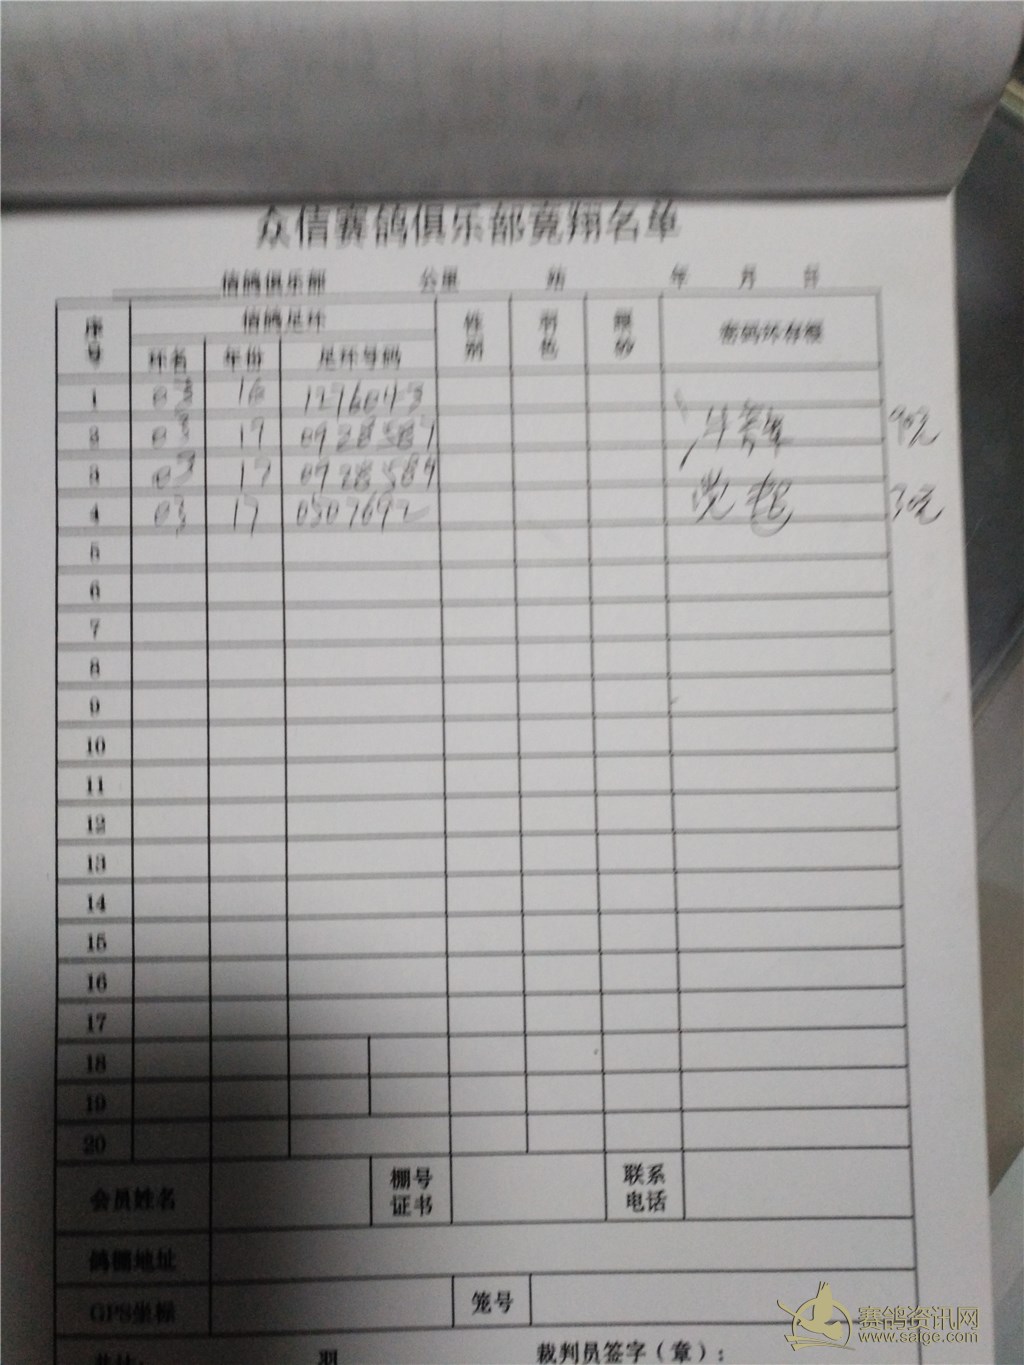 众信赛鸽俱乐部竞翔名单
信鸽俱乐部 公里 站 年 月 日
序号 信鸽足环 性别 羽色 眼砂
环名 年份 足环号码
1 03 16 1276043
2 03 17 0928587
3 03 17 0928589
4 03 17 0507692
5
6
7
8
9
10
11
12
13
14
15
16
17
18
19
20
会员姓名 棚号证书 联系电话
鸽棚地址
GPS坐标 笼号
裁判员签字（章）：
赛鸽资讯网
www.saige.com